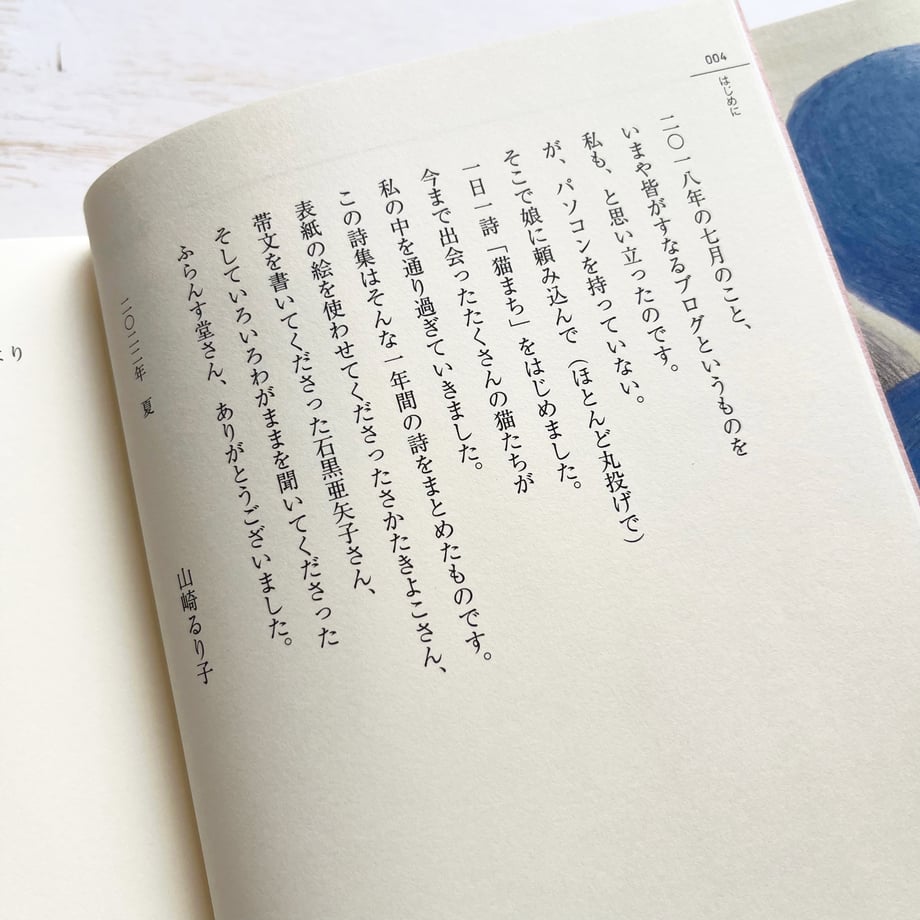 004
はじめに
二〇一八年の七月のこと、
いまや皆がすなるブログというものを
私も、と思い立ったのです。
が、パソコンを持っていない。
そこで娘に頼み込んで（ほとんど丸投げで）
一日一詩「猫まち」をはじめました。
今まで出会ったたくさんの猫たちが
私の中を通り過ぎていきました。
この詩集はそんな一年間の詩をまとめたものです。
表紙の絵を使わせてくださったさかたきよこさん、
帯文を書いてくださった石黒亜矢子さん、
そしていろいろわがままを聞いてくださった
ふらんす堂さん、ありがとうございました。
二〇二二年 夏
山崎るり子
より